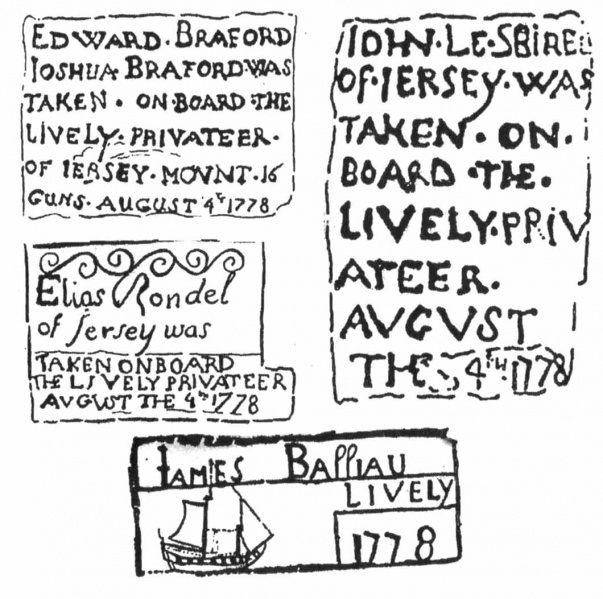 EDWARD. BRAFORD
IOSHUA BRAFORD·WAS
TAKEN · ON·BOARD·THE
LIVELY· PRIVATEER·
OF IERSEY· MOVNT·16
GUNS· AUGUST 4TH 1778
IOHN·LE·SBIREL
OF·IERSEY·WAS
TAKEN·ON·
BOARD·THE·
LIVELY·PRIV
ATEER·
AVGVST
THE 4TH 1778
Elias Rondel
of Jersey was
TAKEN ONBOARD
THE LIVELY PRIVATEER
AVGVST THE 4TH 1778
IAMES BAſſIAU
LIVELY
1778